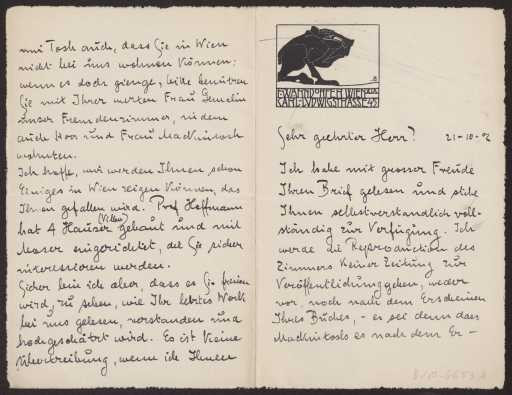 F. WAERNDORFER WIEN XVIII
CARL LUDWIGSTRASSE 45
Sehr geehrter Herr! 21-10-02
Ich habe mit grosser Freude
Ihren Brief gelesen und stehe
Ihnen selbstverständlich voll-
ständig zur Verfügung. Ich
werde die Reproduction des
Zimmers keiner Zeitung zur
Veröffentlichung geben, weder
vor noch nach dem Erscheinen
Ihres Buches, - es sei denn dass
Mackintosh es nach dem Er-
mir Tosh auch, dass Sie in Wien
nicht bei uns wohnen können:
wenn es doch gienge, bitte benützen
Sie mit Ihrer werten Frau Gemalin
unser Fremdenzimmer, in dem
auch Herr und Frau Mackintosh
wohnten.
Ich hoffe, wir werden Ihnen schon
Einiges in Wien zeigen können, das
Ihnen gefallen wird. Prof Hoffmann
hat 4 Häuser (Villen) gebaut und mit
Moser eingerichtet, die Sie sicher
interessieren werden.
Sicher bin ich aber, dass es Sie freuen
wird, zu sehen, wie Ihr letztes Werk
bei uns gelesen, verstanden und
hochgeschätzt wird. Es ist keine
Übertreibung, wenn ich Ihnen